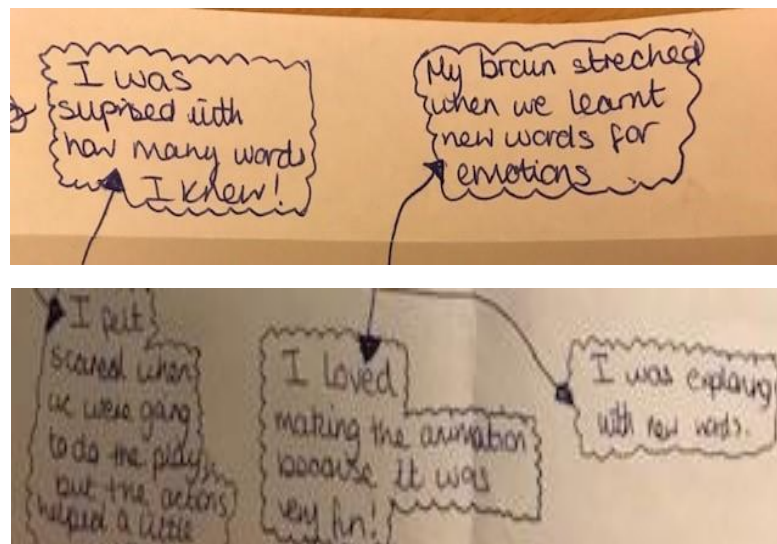 I was
suprised with
how many words
I knew!
My brain streched
when we learnt
new words for
emotions
I felt
scared when
we were going
to do the play,
but the actions
helped a little
I loved
making the animation
because it was
very fun!
I was exploring
with new words.